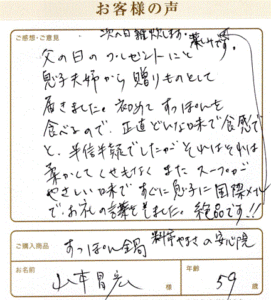 お客様の声
ご感想・ご意見
次の日雑炊します。楽しみです。
父の日のプレゼントにと
息子夫婦から贈りものとして
届きました。初めてすっぽんを
食べるので、正直どんな味で食感で
と、半信半疑でしたがそれはそれは
柔かくてくせもなく またスープが
やさしい味で すぐに息子に国際メール
で、お礼の言葉をしました。絶品です!!
ご購入商品
すっぽん鍋 料亭やまさの安心院
お名前
山本昌宏 様
年齢
59歳